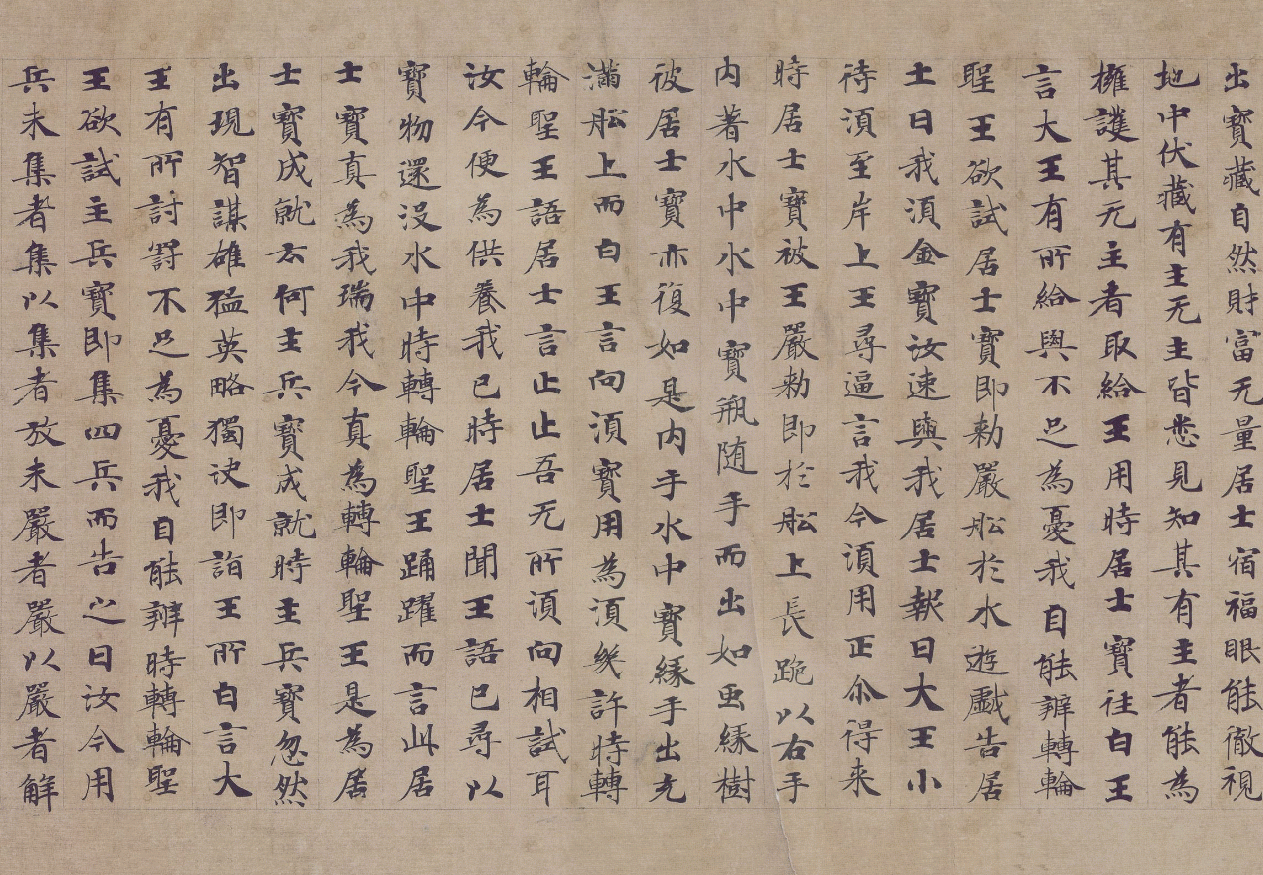 出寶藏自然財富无量居士宿福眼能徹視
地中伏藏有主无主皆悉見知其有主者能為
擁護其无主者取給王用時居士寶往白王
言大王有所給與不足為憂我自能辦轉輪
聖王欲試居士寶即勅嚴舩於水遊戱告居
士曰我須金寶汝速與我居士報曰大王小
待須至岸上王尋逼言我今須用正尒得来
時居士寶被王嚴勅即於舩上長跪以右手
内著水中水中寶瓶随手而出如虫緣樹
彼居士寶亦復如是内手水中寶緣手出充
滿舩上而白王言向須寶用為須幾許時轉
輪聖王語居士言止止吾无所須向相試耳
汝今便為供養我已時居士聞王語已尋以
寶物還没水中時轉輪聖王踊躍而言此居
士寶真為我瑞我今真為轉輪聖王是為居
士寶成就云何主兵寶成就時主兵寶忽然
出現智謀雄猛英略獨决即詣王所白言大
王有所討罸不足為憂我自能辦時轉輪聖
王欲試主兵寶即集四兵而告之曰汝今用
兵未集者集以集者放未嚴者嚴以嚴者解